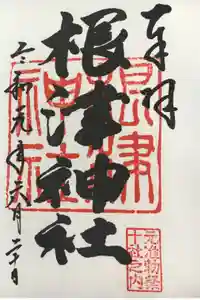 奉拝
根津神社
令和元年六月二十日
根津神社
元准勅祭
十社之内